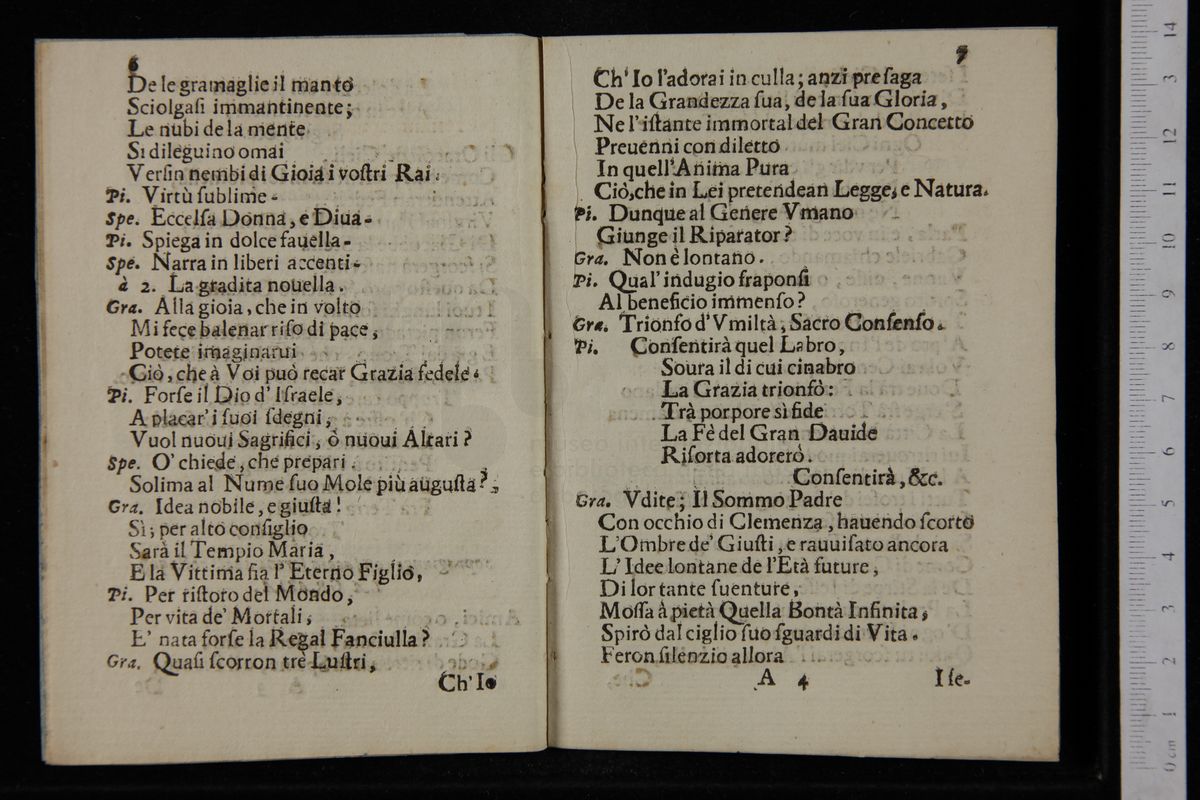 6
De le gramaglie il manto
Sciolgaſi immantinente;
Le nubi de la mente
Si dileguino omai
Verſin nembi di Gioia i voſtri Rai.
Pi. Virtù ſublime-
Spe. Eccelſa Donna, e Diua-
Pi. Spiega in dolce fauella-
Spe. Narra in liberi accenti-
à 2. La gradita nouella.
Gra. Alla gioia, che in volto
Mi fece balenar riſo di pace,
Potete imaginarui
Ciò, che à Voi può recar Grazia fedele.
Pi. Forſe il Dio d'Iſraele,
A placar' i ſuoi ſdegni,
Vuol nuoui Sagrifici, ò nuoui Altari?
Spe. O' chiede, che prepari
Solima al Nume ſuo Mole più auguſta?
Gra. Idea nobile, e giuſta!
Sì; per alto conſiglio
Sarà il Tempio Maria,
E la Vittima fia l' Eterno Figlio,
Pi. Per riſtoro del Mondo,
Per vita de' Mortali,
E' nata forſe la Regal Fanciulla?
Gra. Quaſi ſcorron trè Luſtri,
Ch' Io
7
Ch' Io l'adorai in culla; anzi preſaga
De la Grandezza ſua, de la ſua Gloria,
Ne l' iſtante immortal del Gran Concetto
Preuenni con diletto
In quell' Anima Pura
Ciò, che in Lei pretendean Legge, e Natura.
Pi. Dunque al Genere Vmano
Giunge il Riparator?
Gra. Non è lontano.
Pi. Qual' indugio fraponſi
Al beneficio immenſo?
Gra. Trionfo d' Vmiltà, Sacro Conſenſo.
Pi. Conſentirà quel Labro,
Soura il di cui cinabro
La Grazia trionfò:
Trà porpore sì fide
La Fè del Gran Dauide
Riſorta adorerò.
Conſentirà, &c.
Gra. Vdite; Il Sommo Padre
Con occhio di Clemenza, hauendo ſcorto
L'Ombre de' Giuſti, e rauuiſato ancora
L' Idee lontane de l'Età future,
Di lor tante ſuenture,
Moſſa à pietà Quella Bontà Infinita,
Spirò dal ciglio ſuo ſguardi di Vita.
Feron ſilenzio allora
A 4
I ſe-
0 cm 1 2 3 4 5 6 7 8 9 10 11 12 3 14